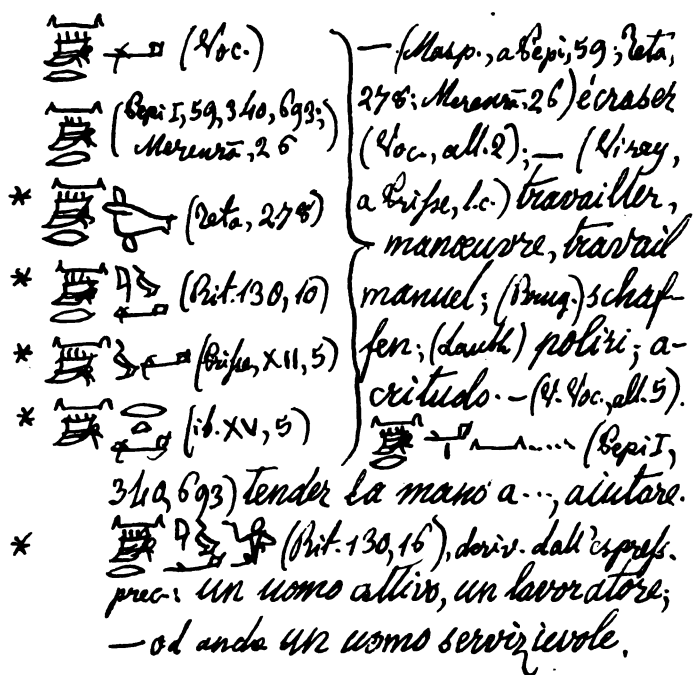 (Voc.)
(Pepi I, 59, 340, 693;
Merenrā, 26
* (Teta, 278)
* (Rit. 130, 10)
* (Prisse, XII, 5)
* (ib. XV, 5)
— (Masp., a Pepi, 59; Teta,
278; Merenrā, 26) écraser
(Voc., all. 2); — (Virey,
a Prisse, l.c.) travailler,
manœuvre, travail
manuel; (Brug.) schaf-
fen; (Lauth) poliri; a-
critudo. — (V. Voc., all. 5).
..... (Pepi I,
340, 693) tender la mano a..., aiutare.
* (Rit. 130, 16), deriv. dall'espress.
prec.: un uomo attivo, un lavoratore;
— od anche un uomo servizievole.